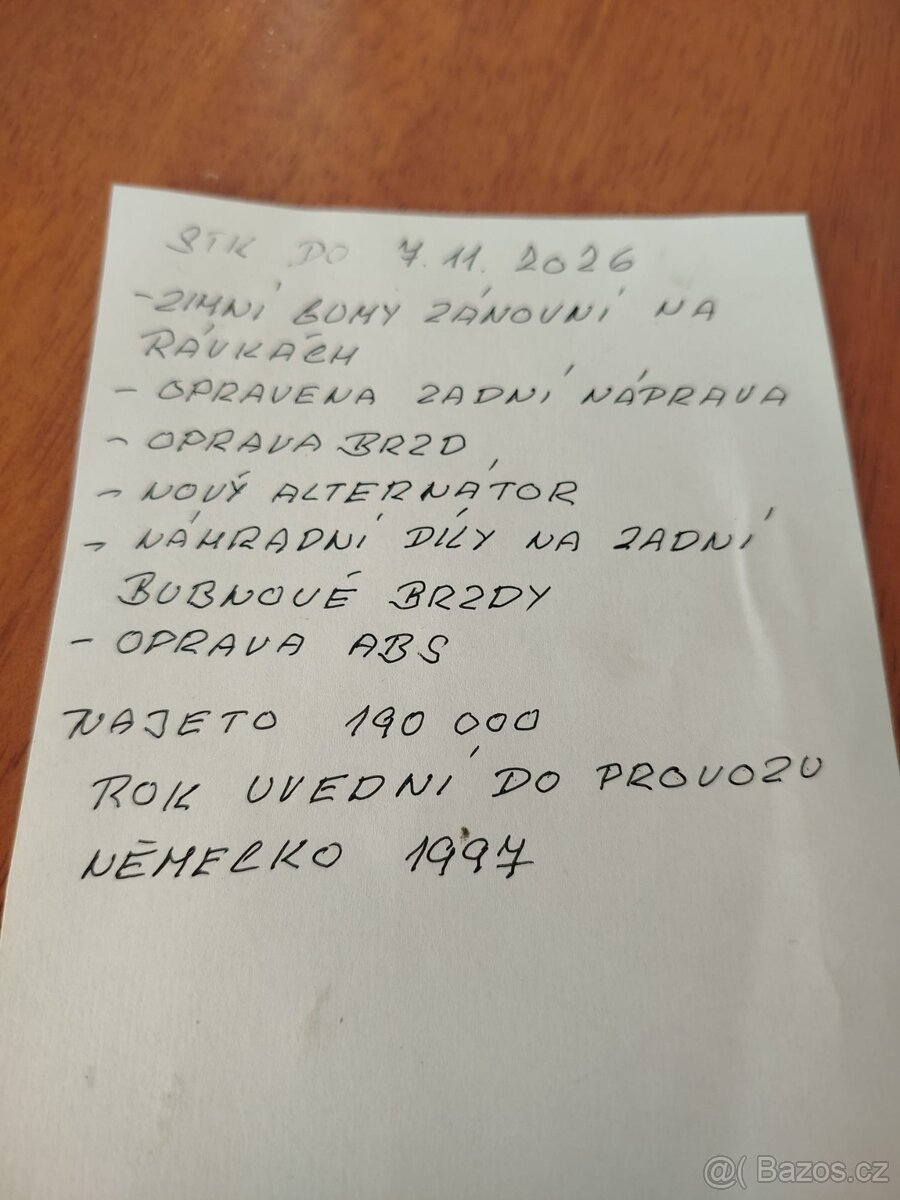 STK DO 7.11.2026
- ZIMNÍ GUMY ZÁNOVNÍ NA
RÁVKÁCH
- OPRAVENA ZADNÍ NÁPRAVA
- OPRAVA BRZD
- NOVÝ ALTERNÁTOR
- NÁHRADNÍ DÍLY NA ZADNÍ
BUBNOVÉ BRZDY
- OPRAVA ABS
NAJETO 190 000
ROK UVEDNÍ DO PROVOZU
NĚMECKO 1997
@( Bazos.cz